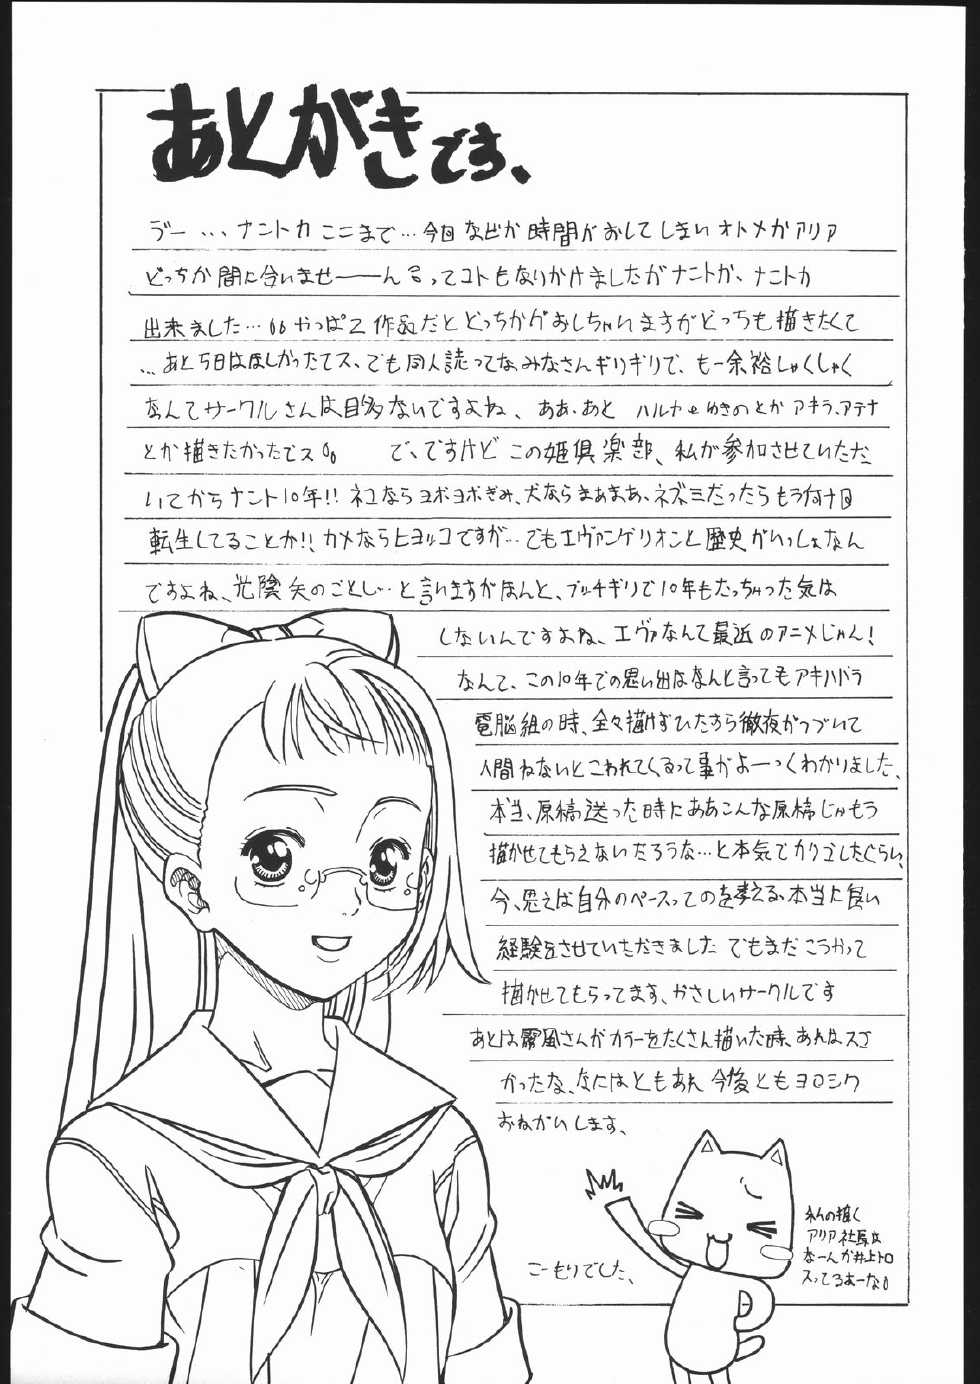 あとがきです、
うー...ナントカここまで...今回などか時間がおしてしまいオトメかアリア
どっちか間に合いませ――んってコトもなりかけましたがナントか、ナントカ
出来ました...。。やっぱ2作品だとどっちかがおしちゃいますがどっちも描きたくて
...あと5日はほしかったてス、でも同人誌ってなみなさんギリギリで、もー余裕しゃくしゃく
なんてサークルさんは目多ないですよね、ああ、あと ハルカとゆきのとかアキラ、アテナ
とか描きたかったでス。。 で、ですけど この姫倶楽部、私が参加させていただ
いてからナント10年!!ネコならヨボヨボぎみ、犬ならまあまあ、ネズミだったらもう何十回
転生してることか!!カメならヒヨッコですが...でもエヴァンゲリオンと歴史がいっしょなん
ですよね、光陰矢のごとし...と言いますがほんと、ブッチギリで10年もたっちゃった気は
しないんですよね、エヴァなんて最近のアニメじゃん!
なんて、この10年での思い出はなんと言ってもアキハバラ
電脳組の時、全々描けずひたすら徹夜がつづいて
人間ねないとこわれてくるって事がよーっくわかりました、
本当、原稿送った時にああこんな原稿じゃもう
描かせてもらえないだろうな...と本気でカクゴしたぐらい、
今、思えば自分のペースってのを考える、本当に良い
経験をさせていただきました でもまだこうやって
描かせてもらってます、やさしいサークルです
あとは霧風さんがカラーをたくさん描いた時、あれはスゴ
かったな、なにはともあれ 今後ともヨロシク
おねがいします、
こーもりでした、
私の描く
アリア社長は
なーんか井上トロ
スってるあーな。